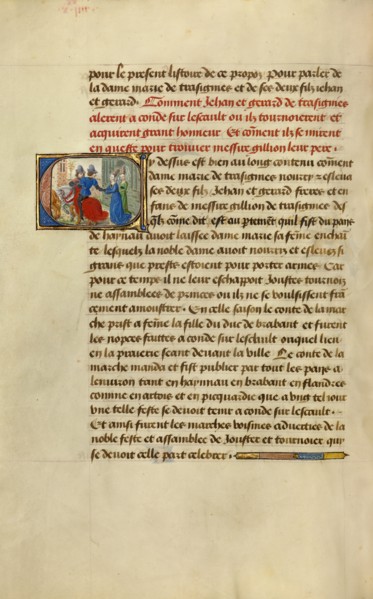 pour le present listoire de ce propoz pour parler de
la dame marie de trasignies et de ses deux filz iehan
et gerard. Comment Jehan et gerard de trasignies
alerent a conde sur lescault ou ilz tournoierent et
acquirent grant honneur Et coment ilz se mirent
en queste pour trouuer messire gillion leur pere.
Cy dessus est bien au long contenu coment
dame marie de trasignies nourry et esleua
ses deux filz Jehan et gerard freres et en
fans de messire gillion de trasignies des
qlz come dit est au partement quil fist du pays
de haynau auoit laissee dame marie sa feme enchai
te lesquelz la noble dame auoit nourry et esleuez si
grans que prestz estoient pour porter armes Car
pour ce temps il ne leur eschappoit Joustes tournois
ne assamblees de princes ou ilz ne se voulsissent fran
cement amoustrer. En celle saison le conte de la mar
che prist a feme la fille du duc de brabant et furent
les nopces faittes a conde sur lescault ouquel lieu
en la praierie seant deuant la ville Le conte de la
marche manda et fist publier par tout les pays a
lenuiron tant en haynnau en brabant en flandres
comme en artois et en picquardie que a vng tel iour
vne telle feste se deuoit tenir a conde sur lescault.
Et ainsi furent les marches voisines aduerties de la
noble feste et assamblee de Jouster et tournoier qui
se deuoit celle part celebrer.